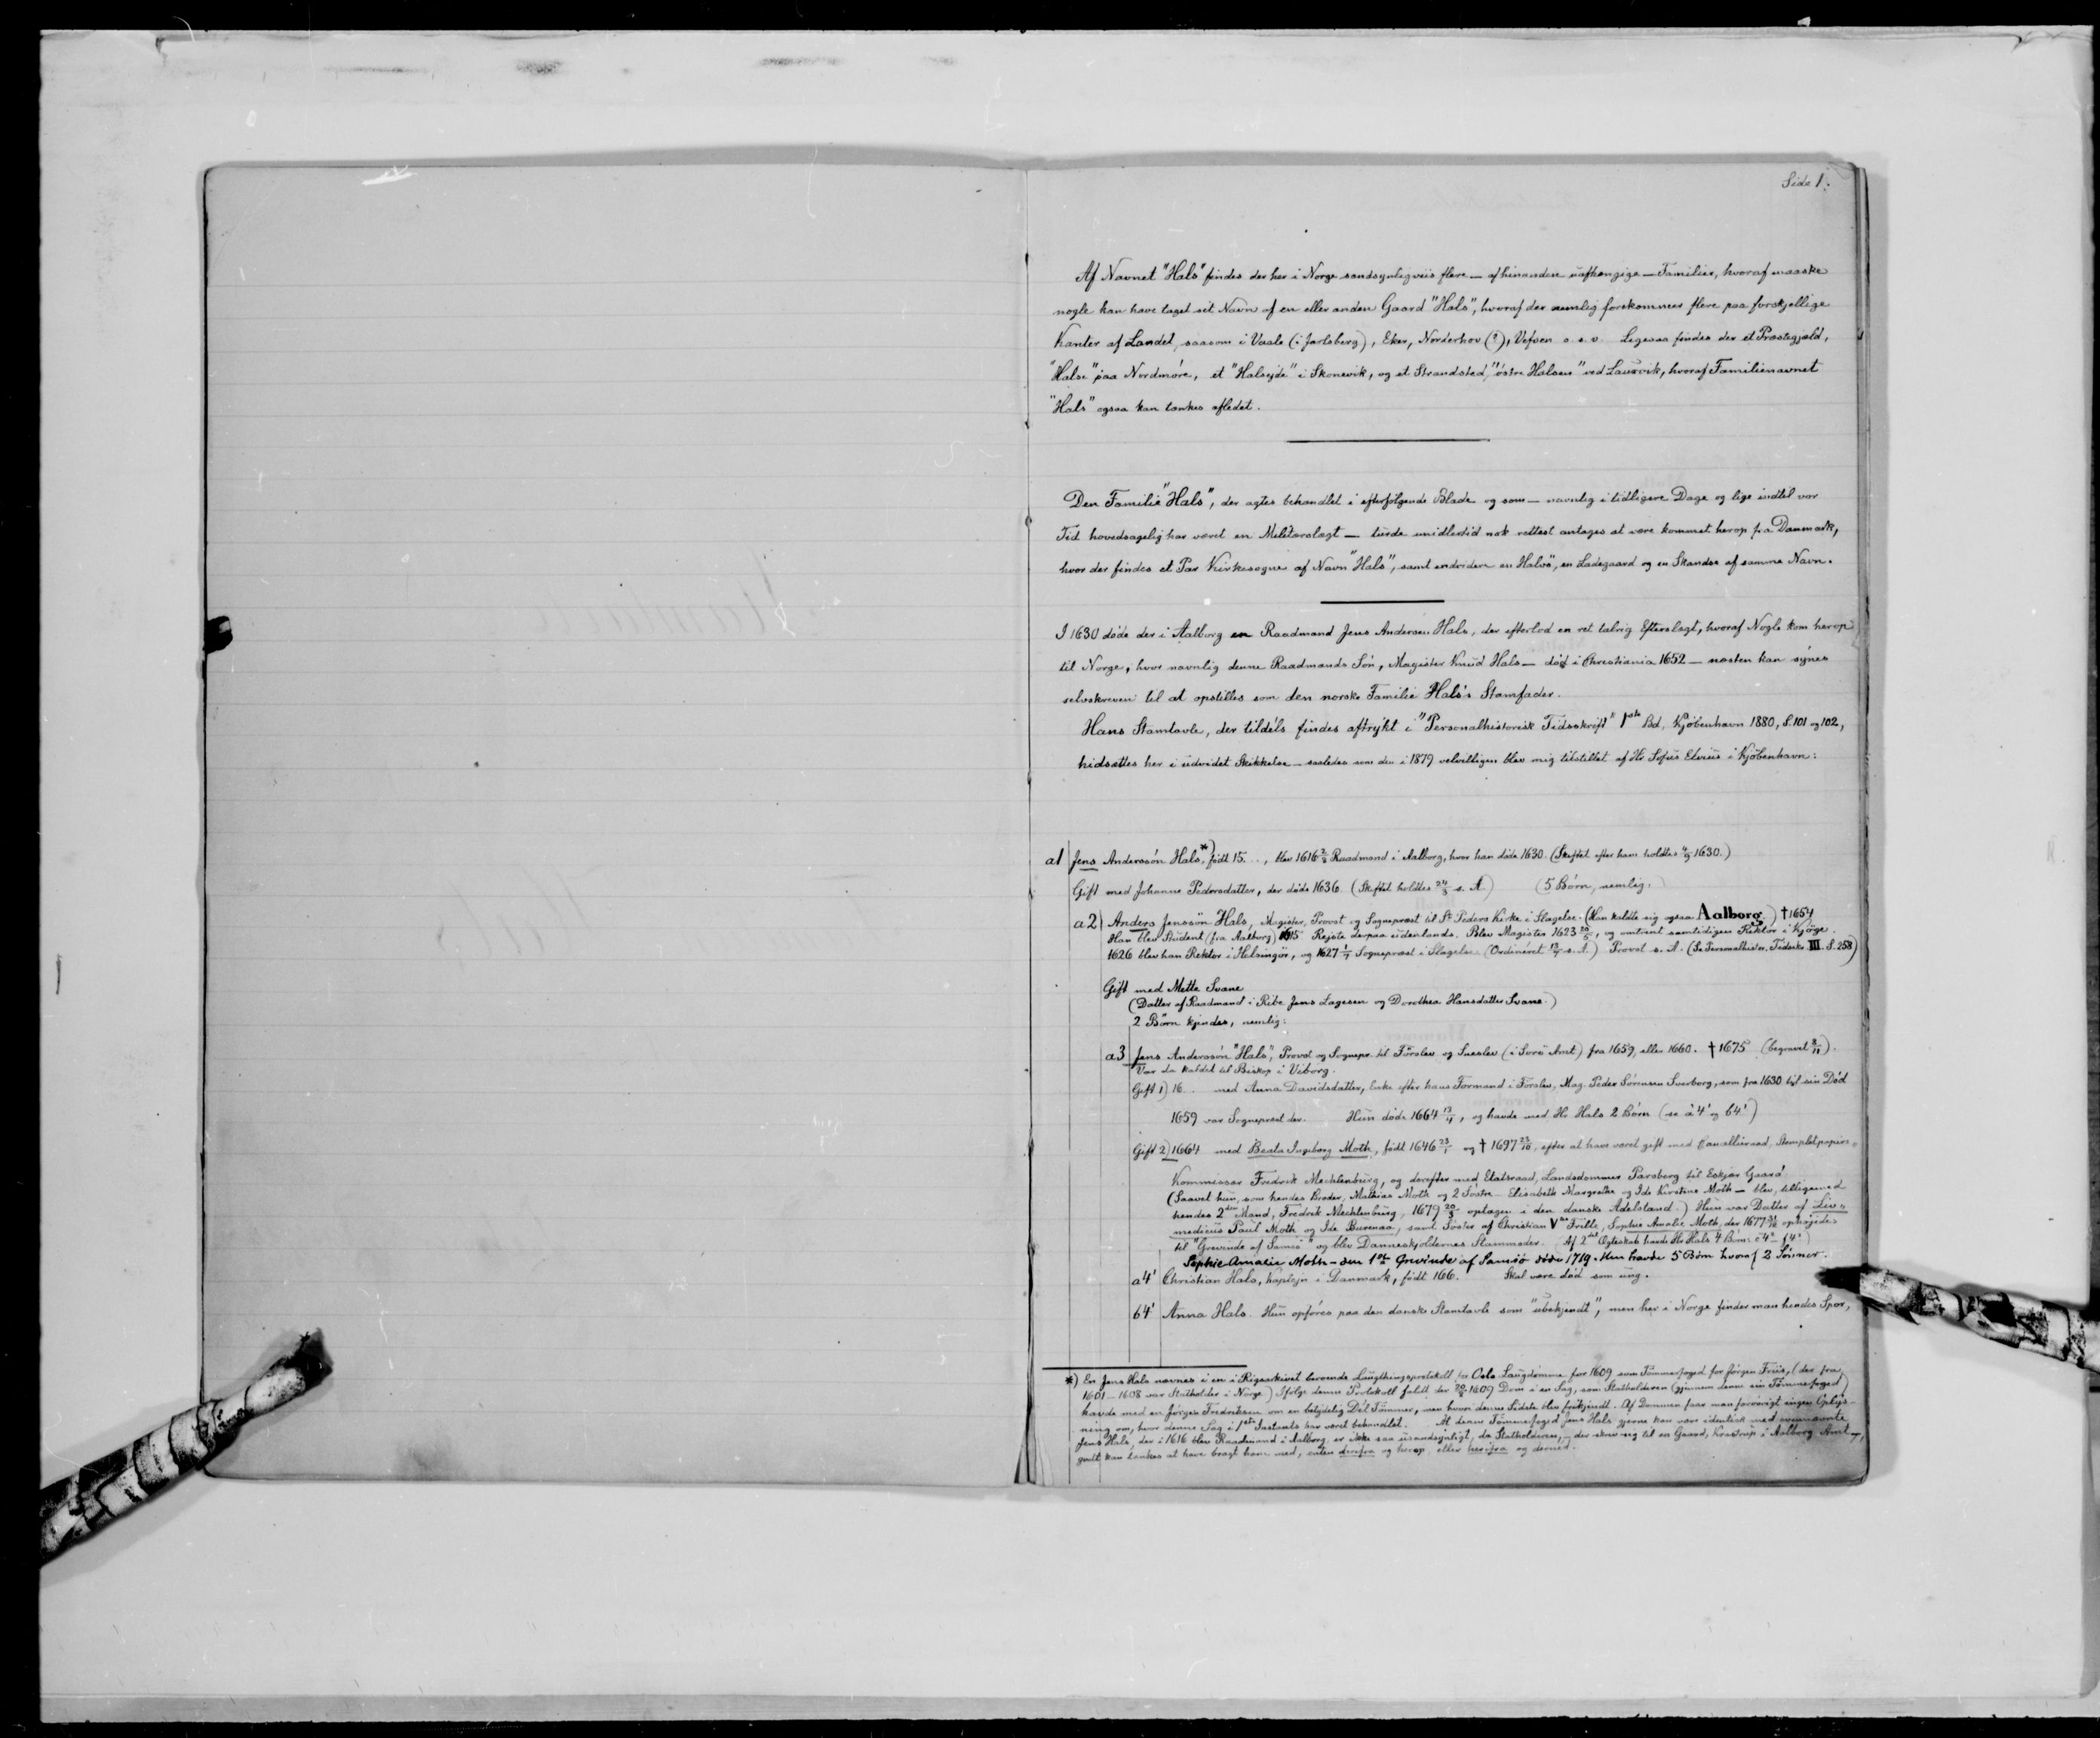 Side 1.
Af Navnet "Hals" findes der her i Norge sandsynligviis flere — afhinanden uafhængige — Familier, hvoraf maaske
nogle kan have taget sit Navn af en eller anden Gaard "Hals", hvoraf der nemlig forekommer flere paa forskjellige
Kanter af Landet, saasom i Vaale (i Jarlsberg), Eker, Norderhov (?), Vefsen o.s.v. Ligesaa findes der et Præstegjæld,
"Halse" paa Nordmøre, et "Halsejde" i Skonevik, og et Strandsted, "østre Halsen" ved Laurvik, hvoraf Familienavnet
"Hals" ogsaa kan tænkes afledet.
Den Familie "Hals", der agtes behandlet i efterfølgende Blade og som — navnlig i tidligere Dage og lige indtil vor
Tid hovedsagelig har været en Militærslægt — turde imidlertid nok rettest antages at være kommet herop fra Danmark,
hvor der findes et Par Kirkesogne af Navn "Hals", samt endvidere en Halsø, en Ladegaard og en Skandse af samme Navn.
I 1630 døde der i Aalborg en Raadmand Jens Andersen Hals, der efterlod en ret talrig Efterslægt, hvoraf Nogle kom herop
til Norge, hvor navnlig denne Raadmands Søn, Magister Knud Hals — død i Christiania 1652 — næsten kan synes
selvskreven til at opstilles som den norske Familie Hals's Stamfader.
Hans Stamtavle, der tildels findes aftrykt i "Personalhistorisk Tidsskrift" 1ste Bd, Kjøbenhavn 1880, S. 101 og 102,
hidsættes her i udvidet Skikkelse — saaledes som den i 1879 velvilligen blev mig tilstillet af Hr Sofus Elvius i Kjøbenhavn:
a1 Jens Anderssøn Hals *), født 15.., blev 1616 2/2 Raadmand i Aalborg, hvor han døde 1630. (Skiftet efter ham holdtes 4/9 1630.)
Gift med Johanne Pedersdatter, der døde 1636. (Skiftet holdtes 24/3 s. A.) (5 Børn, nemlig:
a2 Anders Jenssøn Hals, Magister, Provst og Sognepræst til St Peders Kirke i Slagelse. (Han kaldte sig ogsaa Aalborg.) † 1654
Han blev Student (fra Aalborg) 1615 Rejste derpaa udenlands. Blev Magister 1623 20/5, og omtrent samtidigen Rektor i Kjøge.
1626 blev han Rektor i Helsingør, og 1627 1/4 Sognepræst i Slagelse. (Ordineret 13/4 s. A.) Provst s. A. (Se Personalhistor. Tidsskr III. S. 258)
Gift med Mette Svane
(Datter af Raadmand i Ribe Jens Lagesen og Dorothea Hansdatter Svane.)
2 Børn kjendes, nemlig:
a3 Jens Anderssøn "Hals", Provst og Sognepr. til Førslev og Sneslev (i Sorø Amt) fra 1659, eller 1660. † 1675 (begravet 8/11).
Var da kaldet til Biskop i Viborg.
Gift 1) 16.. med Anna Davidsdatter, Enke efter hans Formand i Førslev, Mag. Peder Sørensen Sverborg, som fra 1630 til sin Død
1659 var Sognepræst der. Hun døde 1664 13/4, og havde med Hr Hals 2 Børn (se a4' og b4')
Gift 2) 1664 med Beata Ingeborg Moth, født 1646 23/1 og † 1697 22/10, efter at have været gift med Cancelliraad, Stempletpapirs-
Kommissær Fredrik Mechlenburg, og derefter med Etatsraad, Landsdommer Parsberg til Eskjær Gaard.
(Saavel hun, som hendes Broder, Mathias Moth og 2 Søstre Elisabeth Margrethe og Ide Kirstine Moth — blev, tilligemed
hendes 2den Mand, Fredrik Mechlenburg, 1679 20/3 optagen i den danske Adelstand.) Hun var Datter af Liv-
medicus Paul Moth og Ide Burenaa, samt Søster af Christian Vtes Frille, Sophie Amalie Moth, der 1677 31/12 ophøjedes
til "Grevinde af Samsø" og blev Danneskjoldernes Stammoder. Af 2det Ægteskab havde Hr Hals 4 Børn: c4 – f4')
Sophie Amalie Moth – den 1ste Grevinde af Samsø døde 1719. Hun havde 5 Børn hvoraf 2 Sønner.
a4' Christian Hals, Kaptejn i Danmark, født 166. Skal være død som ung.
b4' Anna Hals. Hun opføres paa den danske Stamtavle som "ubekjendt", men her i Norge finder man hendes Spor,
*) En Jens Hals nævnes i en i Rigsarkivet beroende Laugthingsprotokoll for Oslo Laugdømme for 1609 som Tømmerfoged for Jørgen Friis, (der fra
1601 – 1608 var Statholder i Norge) Ifølge denne Protokoll faldt der 20/2 1609 Dom i en Sag, som Statholderen (gjennem denne sin Tømmerfoged)
havde med en Jørgen Fredriksen om en betydelig Del Tømmer, men hvori denne Sidste blev frikjendt. Af Dommen faar man forøvrigt ingen Oplys-
ning om, hvor denne Sag i 1ste Instants har været behandlet. At denne Tømmerfoged Jens Hals gjerne kan være identisk med ovennævnte
Jens Hals, der i 1616 blev Raadmand i Aalborg, er ikke saa usandsynligt, da Statholderen, — der skrev sig til en Gaard, Krastrup i Aalborg Amt —,
godt kan tænkes at have bragt ham med, enten derfra og herop, eller herifra og derned.